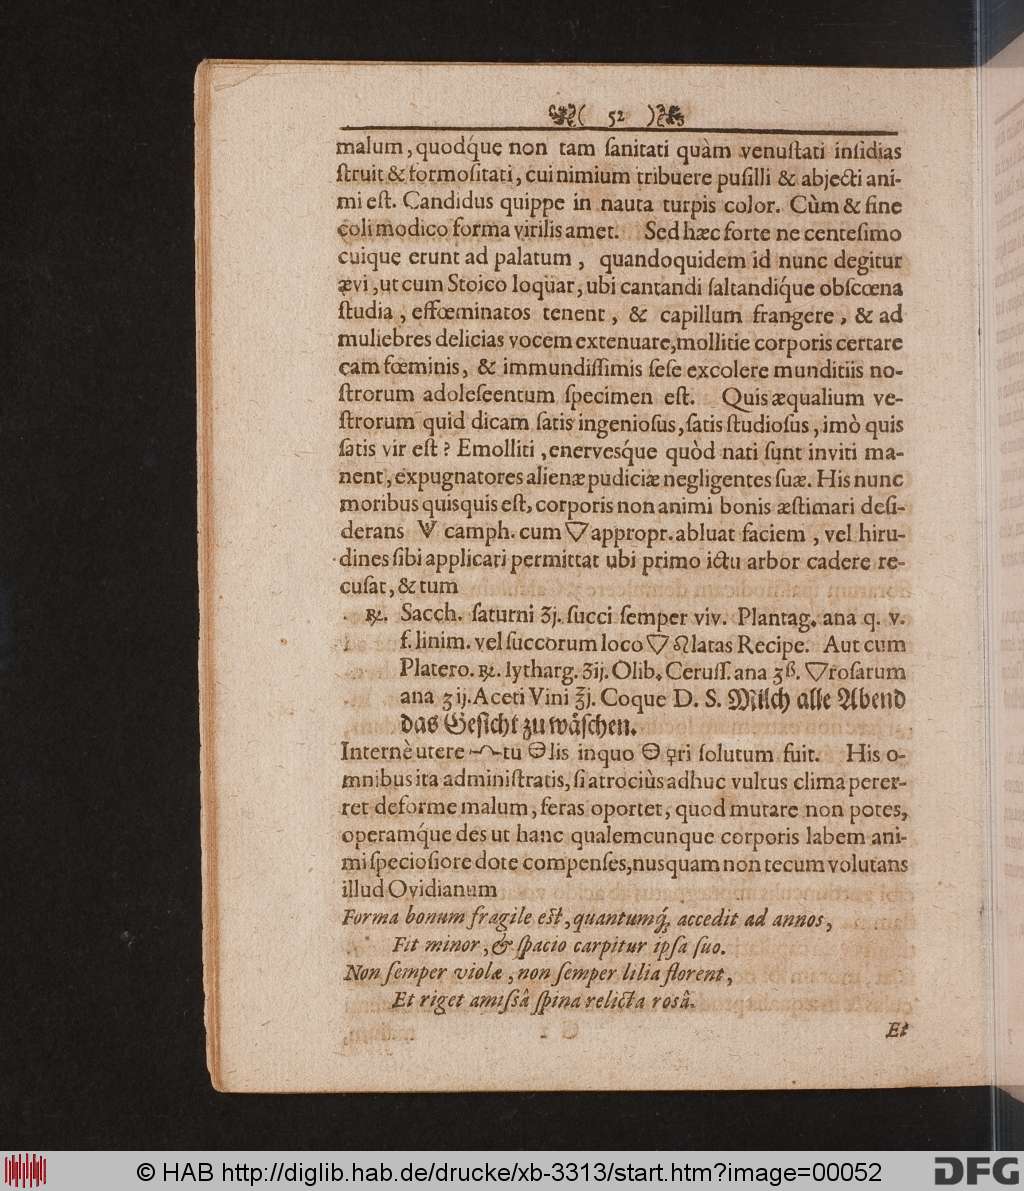 ( 52 )
malum, quodq́ue non tam ſanitati quàm venuſtati inſidias
ſtruit & formoſitati, cui nimium tribuere puſilli & abjecti ani-
mi eſt. Candidus quippe in nauta turpis color. Cùm & fine
coli modico forma virilis amet. Sed hæc forte ne centeſimo
cuique erunt ad palatum, quandoquidem id nunc degitur
ævi, ut cum Stoico loquar, ubi cantandi ſaltandiq́ue obſcœna
ſtudia, effœminatos tenent, & capillum frangere, & ad
muliebres delicias vocem extenuare, mollitie corporis certare
cam fœminis, & immundiſſimis ſeſe excolere munditiis no-
ſtrorum adoleſeentum ſpecimen eſt. Quis æqualium ve-
ſtrorum quid dicam ſatis ingenioſus, ſatis ſtudioſus, imò quis
ſatis vir eſt? Emolliti, enervesq́ue quòd nati ſunt inviti ma-
nent, expugnatores alienæ pudiciæ negligentes ſuæ. His nunc
moribus quisquis eſt, corporis non animi bonis æſtimari deſi-
derans camph. cum 🜄 appropr. abluat faciem, vel hiru-
dines ſibi applicari permittat ubi primo ictu arbor cadere re-
cuſat, & tum
℞. Sacch. ſaturni ʒj. ſucci ſemper viv. Plantag. ana q. v.
f. linim. vel ſuccorum loco 🜄 ♌latas Recipe. Aut cum
Platero. ℞. lytharg. ʒij. Olib. Ceruſſ. ana ʒß. 🜄 roſarum
ana ʒij. Aceti Vini ℥j. Coque D. S. Milch alle Abend
das Geſicht zu waͤſchen.
Internè utere tu 🜔lis in quo 🜔 ♀ri ſolutum fuit. His o-
mnibus ita adminiſtratis, ſi atrociùs adhuc vultus clima perer-
ret deforme malum, feras oportet, quod mutare non potes,
operamq́ue des ut hanc qualemcunque corporis labem ani-
mi ſpecioſiore dote compenſes, nusquam non tecum volutans
illud Ovidianum
Forma bonum fragile eſt, quantumq́; accedit ad annos,
Fit minor, & ſpacio carpitur ipſa ſuo.
Non ſemper violæ, non ſemper lilia florent,
Et riget amiſſâ ſpina relicta roſâ.
Et
© HAB http://diglib.hab.de/drucke/xb-3313/start.htm?image=00052
DFG